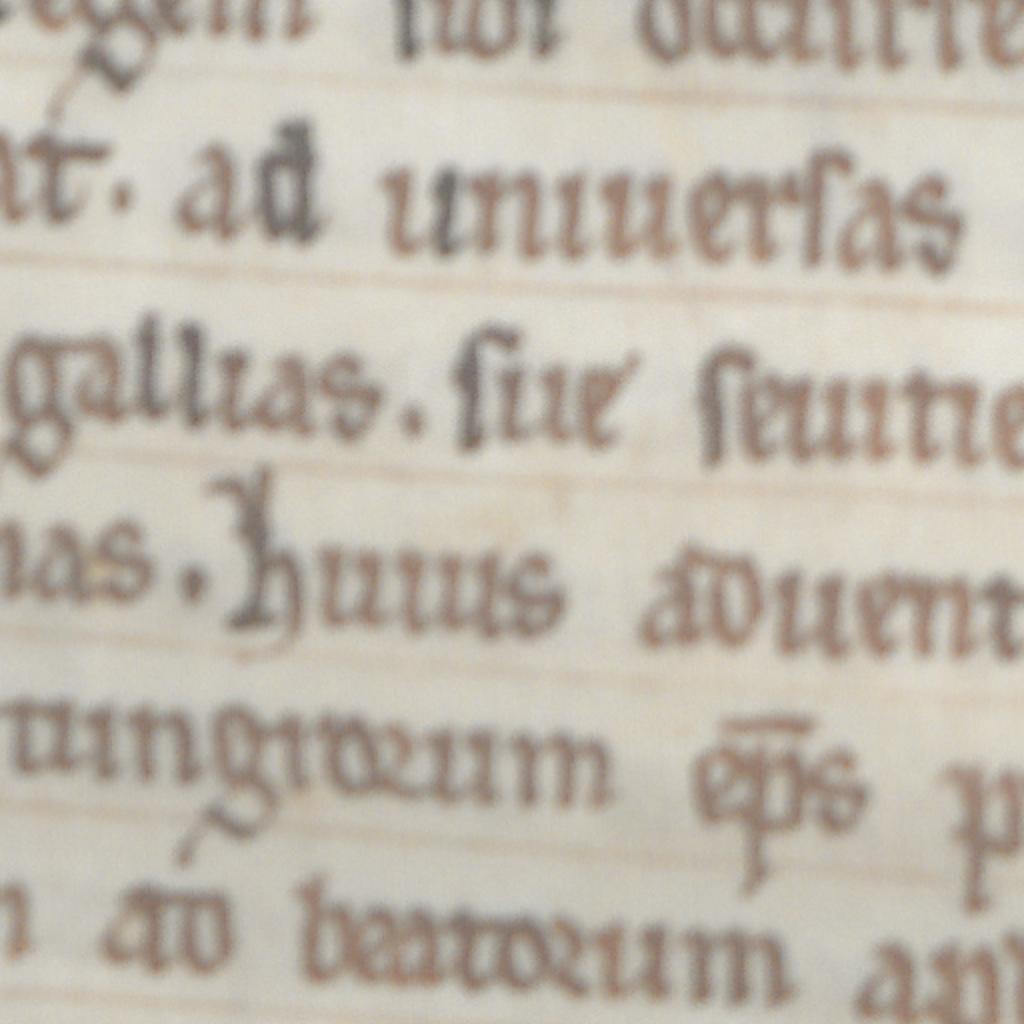 regem sibi
at. ad uniuersas
gallias. siue seuitie
nas. huius aduent
tungrorum ep̄s p
ad beatorum